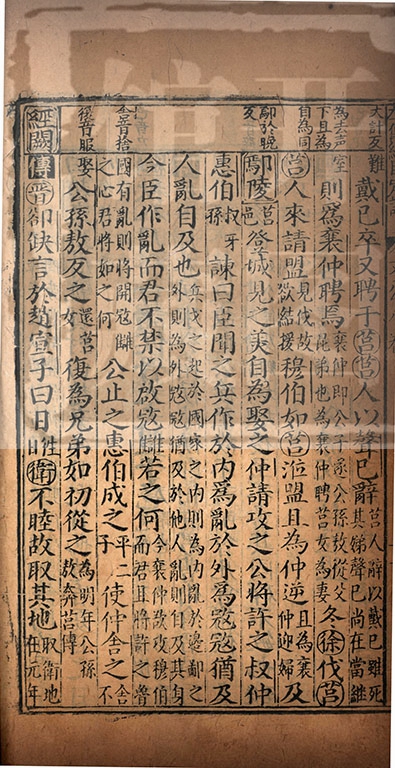 大計反
難戴己卒又聘于莒莒人以聲己辭莒人辭以戴己雖死其娣聲己尚在當繼
為去聲下且為自為同
室則爲襄仲聘焉襄仲即公子遂公孫敖從父昆弟也為襄仲聘莒女為妻冬徐伐莒
莒人來請盟見伐故欲結援穆伯如莒涖盟且為仲逆且為襄仲迎婦及
鄢於晚反
鄢陵莒邑登城見之美自為娶之仲請攻之公將許之叔仲
惠伯叔牙孫諫曰臣聞之兵作於內爲亂於外爲寇寇猶及
人亂自及也兵戈之起於國家之內則為內亂於邊鄙之外則為外寇寇猶及於他人亂則自及其身
今臣作亂而君不禁以啟寇讎若之何今襄仲欲攻穆伯而君且將許之魯
舍音捨
國有亂則將開寇讎之心君將如之何公止之惠伯成之平二子使仲舍之舍不
復音服
娶公孫敖反之還莒女復為兄弟如初從之為明年公孫敖奔莒傳
經闕
傳晉郤缺言於趙宣子曰日往衛不睦故取其地取衛地在元年